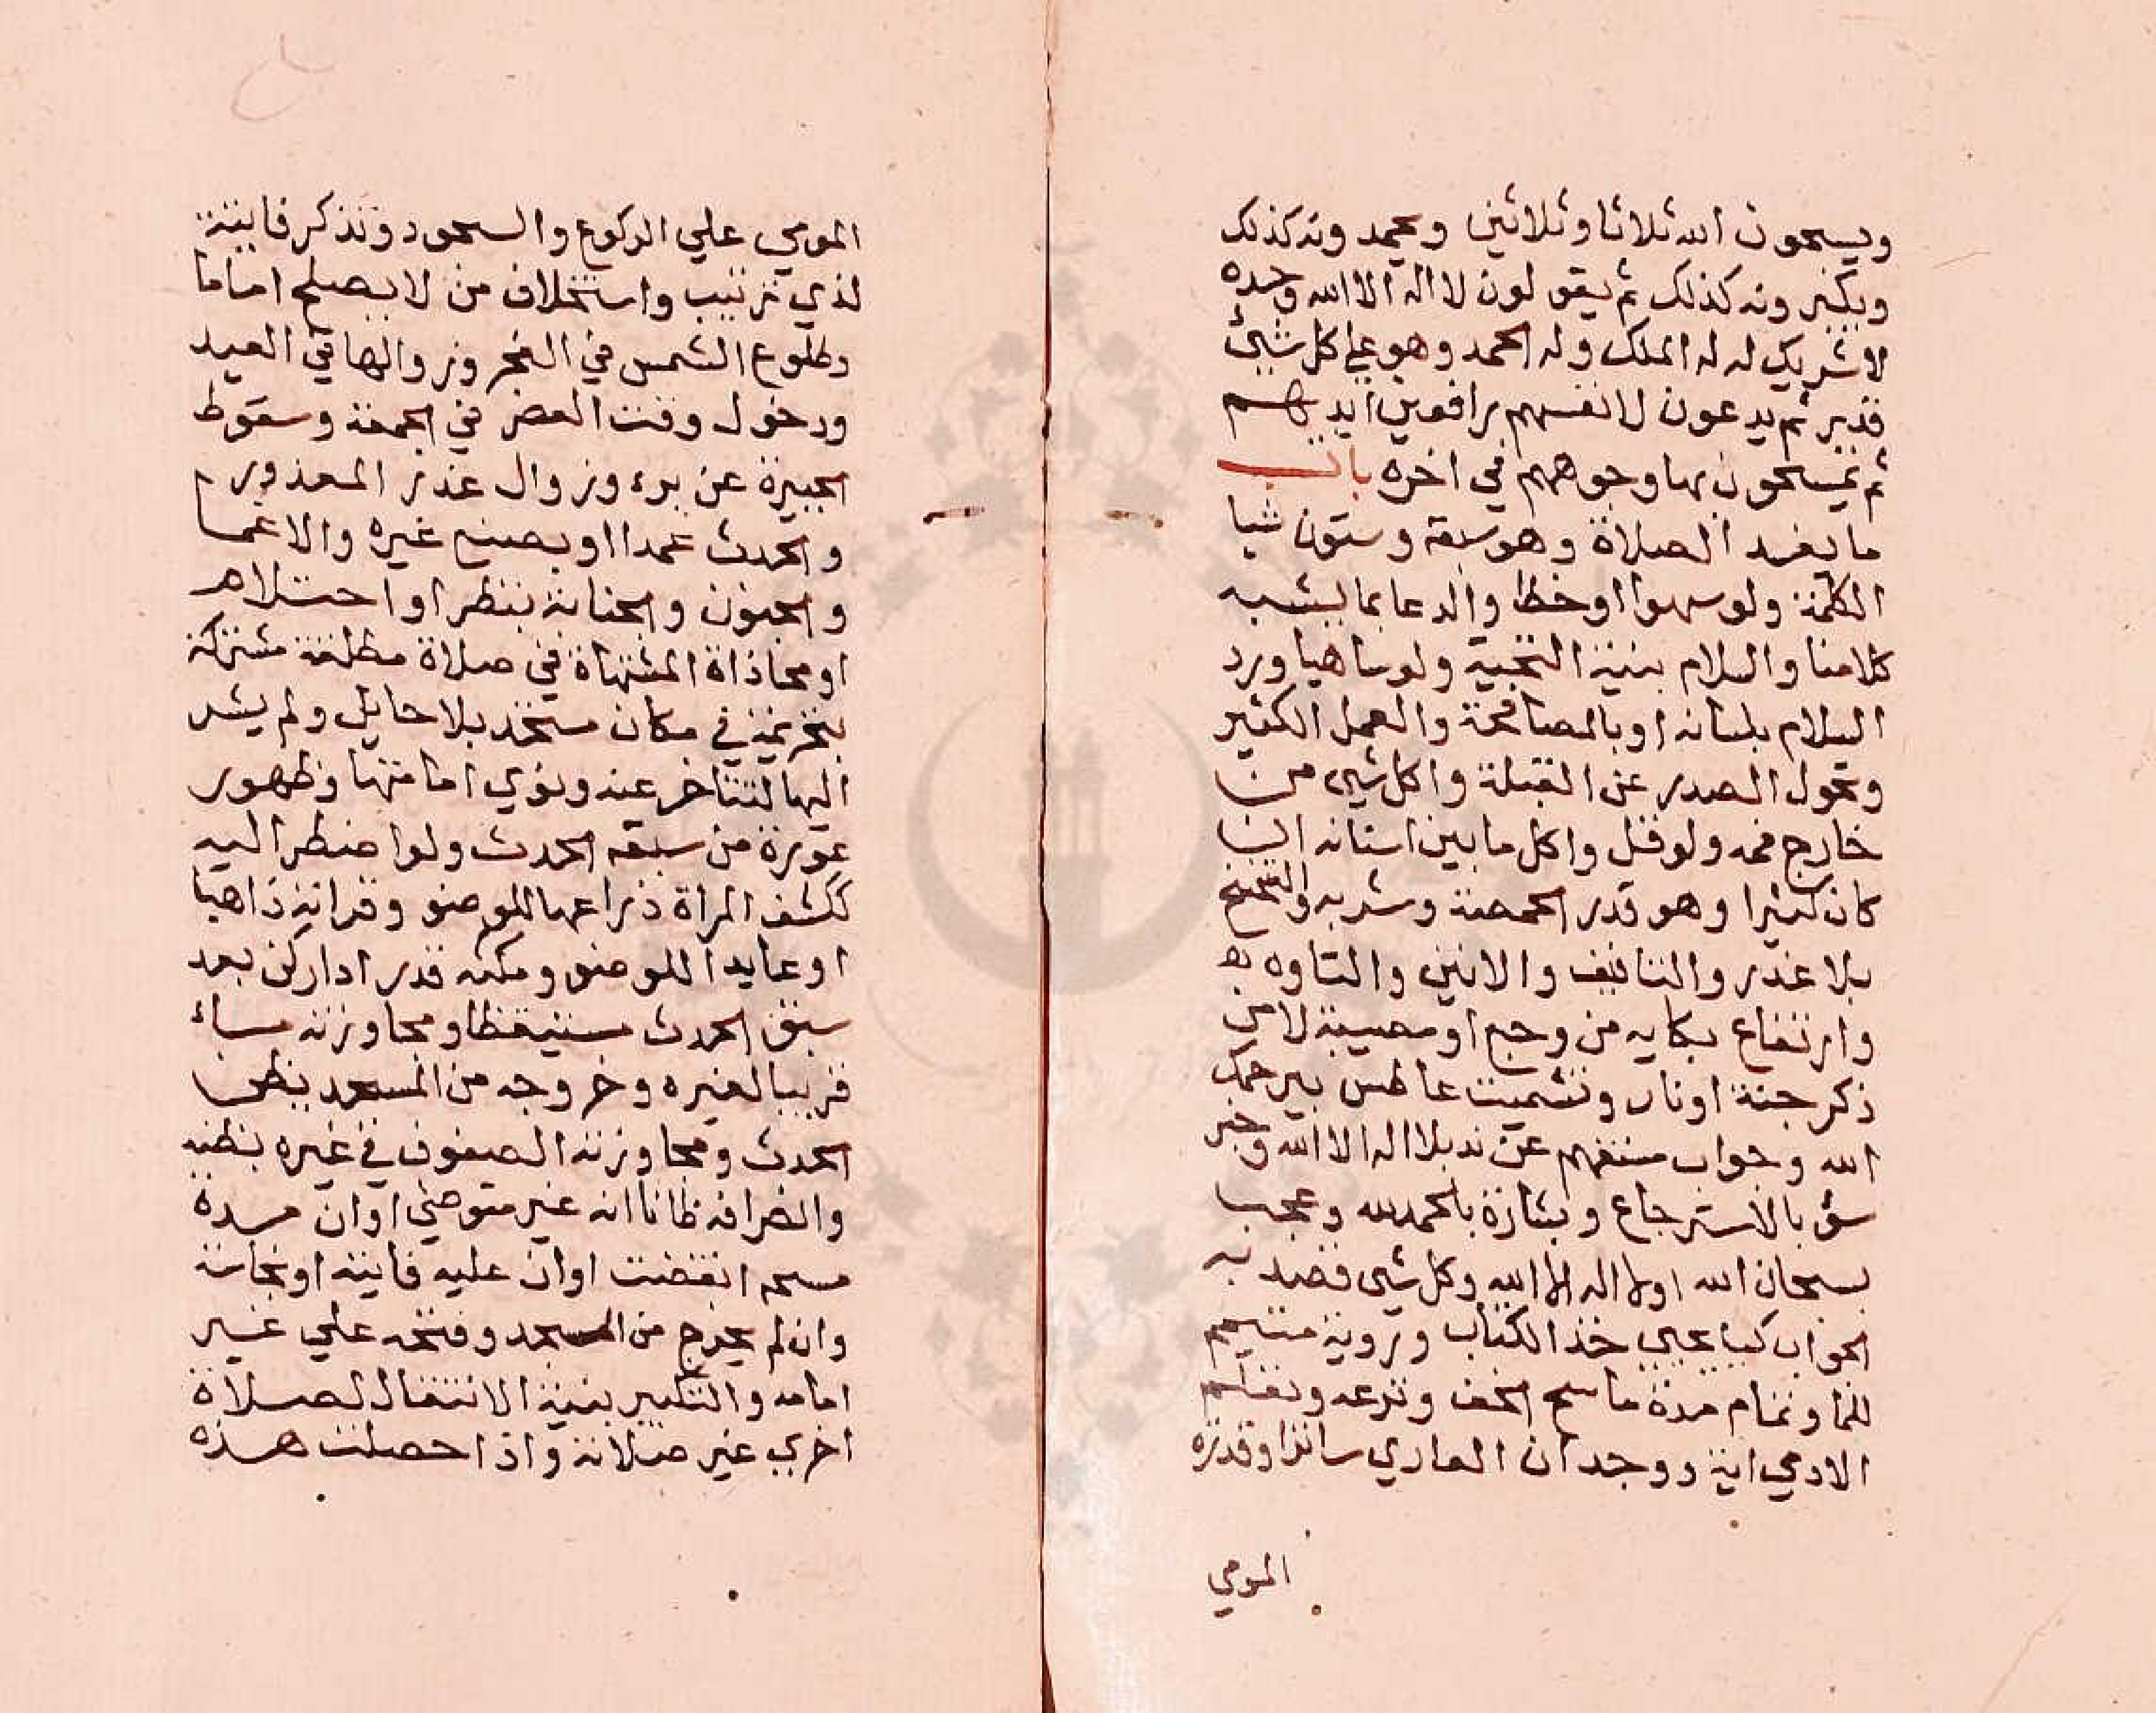 ويسبحون الله ثلاثا وثلاثين ويحمدونه كذلك
ويكبرونه كذلك ثم يقولون لا اله الا الله وحده
لا شريك له له الملك وله الحمد وهو علي كل شيئ
قدير ثم يدعون لانفسهم رافعين ايديهم
ثم يمسحون بها وجوههم في اخره باب
ما يفسد الصلاة وهو سبعة وستون شيا
الكلمة ولو سهوا او خطا والدعا بما يشبه
كلامنا والسلام بنية التحية ولو ساهيا ورد
السلام بلسانه او بالمصافحة والعمل الكثير
وتحول الصدر عن القبلة واكل شي من
خارج فمه ولو قل واكل ما بين اسنانه ان
كان كثيرا وهو قدر الحمصة وشربه والتنحنح
بلا عذر والتافيف والانين والتاوه
وارتفاع بكايه من وجع او مصيبة لا من
ذكر جنة او نار وتشميت عاطس بيرحمك
الله وجواب مستفهم عن ند بلا اله الا الله وخبر
سؤ بالاسترجاع وبشارة بالحمد لله وعجب
بسبحان الله او لا اله الا الله وكل شي قصد به
الجواب كيا يحيي خذ الكتاب وروية متيمم
للما وتمام مدة ماسح الخف ونزعه وتعلم
الامي اية ووجدان العاري ساترا وقدرة
المومي
المومي علي الركوع والسجود وتذكر فايتة
لذي ترتيب واستخلاف من لا يصلح اماما
وطلوع الشمس في الفجر وزوالها في العيد
ودخول وقت العصر في الجمعة وسقوط
الجبيرة عن برء وزوال عذر المعذور
والحدث عمدا او بصنع غيره والاغما
والجنون والجنابة بنظر او احتلام
او محاذاة المشتهاة في صلاة مطلقة مشتركة
بتحريمة في مكان متحد بلا حايل ولم يشر
اليها لتتاخر عنه ونوي امامتها وظهور
عورة من سبقه الحدث ولو اضطر اليه
ككشف المراة ذراعها للوضو وقرانه ذاهبا
او عايدا للوضو ومكثه قدر ادا ركن بعد
سبق الحدث مستيقظا ومجاوزته ماء
قريبا لغيره وخروجه من المسجد بظن
الحدث ومجاوزته الصفوف في غيره بظنه
وانصرافه ظانا انه غير متوضي او ان مدة
مسحه انقضت او ان عليه فايتة او نجاسة
وان لم يخرج من المسجد وفتحه علي غير
امامه والتكبير بنية الانتقال لصلاة
اخري غير صلاته واذا حصلت هذه